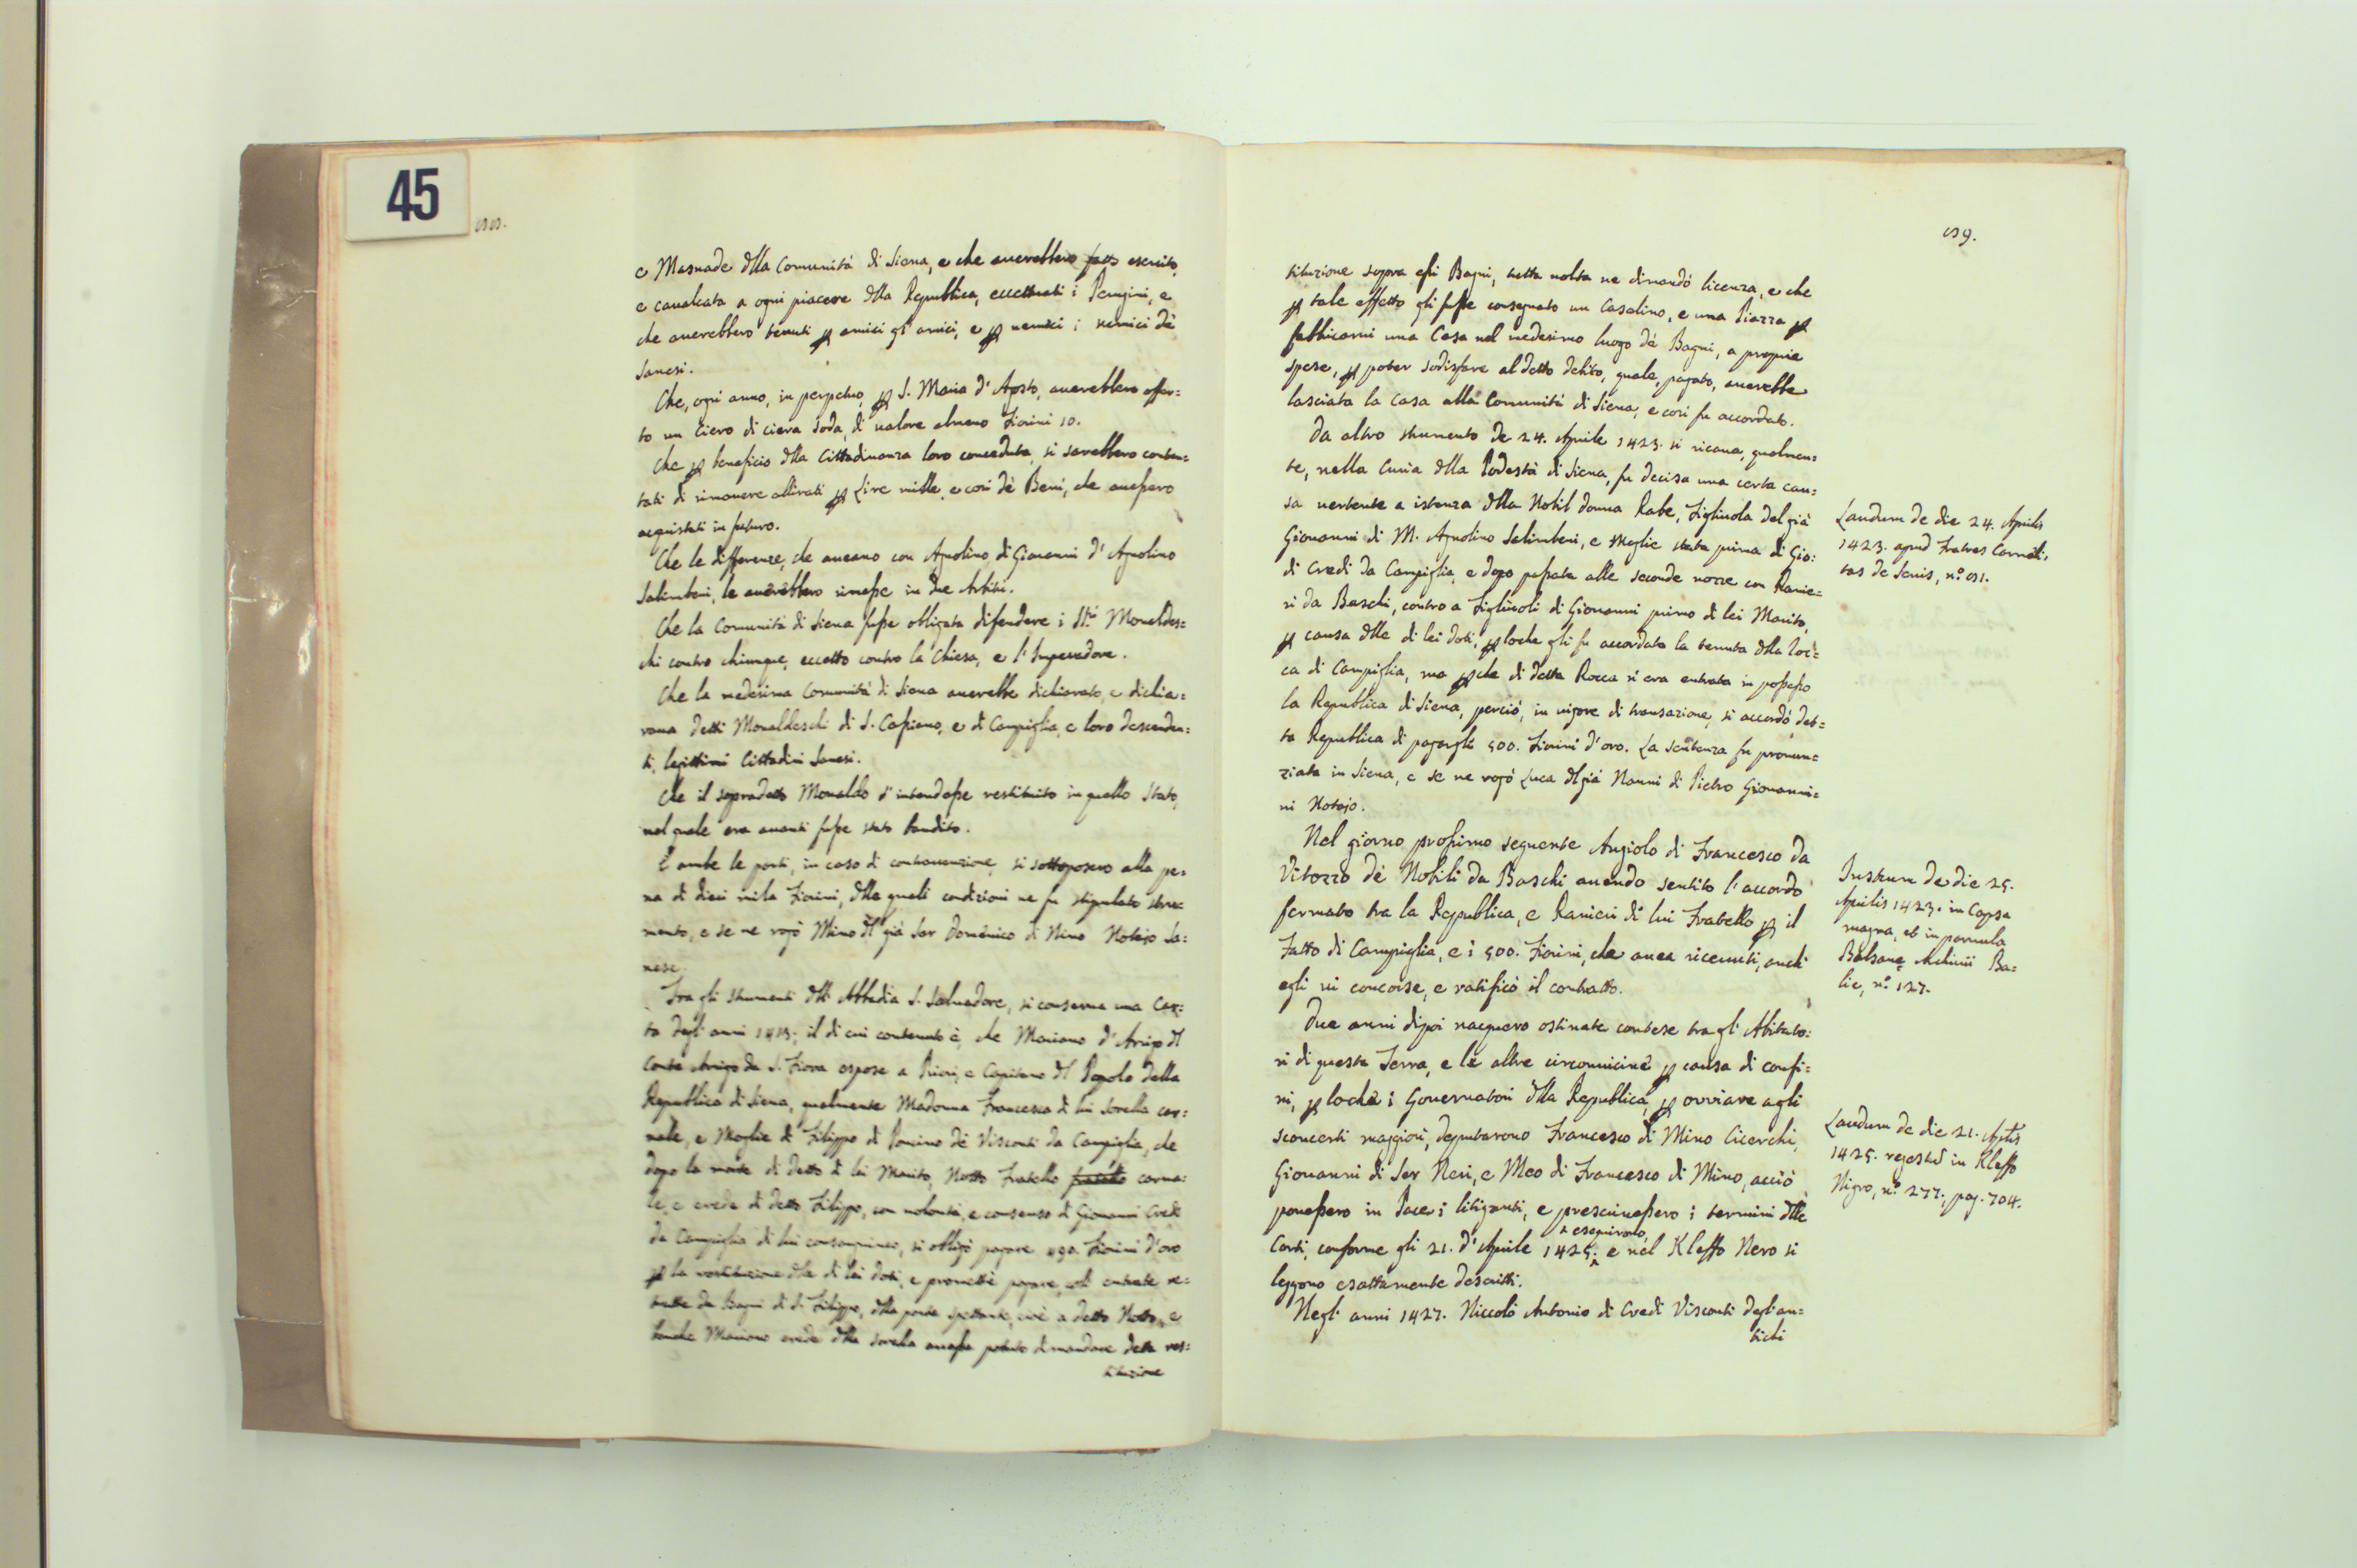 45
88.
e Masnade dlla Comunità di Siena, e che averebbero fatto esercito,
e cavalcata a ogni piacere dlla Republica, eccettuati i Perugini, e
che averebbero tenuti p amici gl'amici, e p nemici i nemici dè
Sanesi.
Che, ogni anno, in perpetuo, p S. Maria d'Agosto, averebbero offer=
to un Ciero di ciera soda, di valore almeno Fiorini 10.
Che p beneficio dlla Cittadinanza loro conceduta, si sarebbero conten=
tati di rimanere allirati p Lire mille, e così dè Beni, che avessero
acquistati in futuro.
Che le differenze, che aveano con Agnolino di Giovanni d'Agnolino
Salimbeni, le averebbero rimesse in due Arbitri.
Che la Comunità di Siena fusse obligata difendere i dtti Monaldes=
chi contro chiunque, eccetto contro la Chiesa, e l'Imperadore.
Che la medesima Comunità di Siena averebbe dichiarato, e dichia=
rava detti Monaldeschi di S. Casciano, e di Campiglia, e loro descenden=
ti, legittimi Cittadini Sanesi.
Che il sopradetto Monaldo s'intendesse restituito in quello Stato,
nel quale era avanti fusse stato bandito.
E ambe le parti, in caso di contravenzione, si sottoposero alla pe=
na di dieci mila Fiorini, dlle quali condizioni ne fu stipulato stru=
mento, e se ne rogò Mino dl già Ser Domenico di Nino Notajo Sa=
nese.
Fra gli strumenti dll'Abbadia S. Salvadore, si conserva una Car=
ta degl'anni 1413; il di cui contenuto è, che Mariano d'Arrigo dl
Conte Arrigo da S. Fiora espose a Priori, e Capitano dl Popolo della
Republica di Siena, qualmente Madonna Francesca di lui sorella car=
nale, e Moglie di Filippo di Poncino dè Visconti da Campiglia, che
dopo la morte di detto di lui Marito, Notto Fratello fratello carna=
le, e erede di detto Filippo, con volontà, e consenso di Giovanni Credi
da Campiglia di lui consanguineo, si obligò pagare 490. Fiorini d'oro
p la restituzione dlle di lei doti, e promette pagare, coll'entrate re=
tratte da Bagni di S. Filippo, dlla parte spettante, cioè a detto Notto, e
benche Mariano erede dlla sorella avesse potuto dimandare detta res=
tituzione
89.
tituzione sopra essi Bagni, tutta volta ne dimandò licenza, e che
p tale effetto gli fusse consegnato un Casalino, e una Piazza p
fabbricarvi una Casa nel medesimo luogo dè Bagni, a proprie
spese, p poter sodisfare al detto debito, quale, pagato, averebbe
lasciata la casa alla Comunità di Siena, e così fu accordato.
Da altro strumento de 24. Aprile 1423. si ricava, qualmen=
te, nella Curia dlla Podestà di Siena, fu decisa una certa cau=
sa vertente a istanza dlla Nobil donna Rabe, Figliuola del già
Giovanni di M. Agnolino Salimbeni, e Moglie stata prima di Gio:
di Credi da Campiglia, e dopo passata alle seconde nozze con Ranie=
ri da Baschi, contro a Figliuoli di Giovanni primo di lei Marito,
p causa dlle di lei doti, p loche gli fu accordata la tenuta dlla Roc=
ca di Campiglia, ma p che di detta Rocca si era entrata in possesso
la Republica di Siena, perciò, in vigore di transazione, si accordò det=
ta Republica di pagargli 500. Fiorini d'oro. La sentenza fu pronun=
ziata in Siena, e se ne rogò Luca dl già Nanni di Pietro Giovanni=
ni Notajo.
Nel giorno prossimo seguente Angiolo di Francesco da
Vitozzo dè Nobili da Baschi avendo sentito l'accordo
fermato tra la Republica, e Ranieri di lui Fratello p il
Fatto di Campiglia, e i 500. Fiorini, che avea ricevuti, anch'
egli vi concorse, e ratificò il contratto.
Due anni dipoi nacquero ostinate contese tra gl'Abitato:
ri di questa Terra, e le altre circonvicine p causa di confi=
ni, p loche i Governatori dlla Republica, p ovviare agli
sconcerti maggiori, deputarono Francesco di Mino Cicerchi,
Giovanni di Ser Neri, e Meo di Francesco di Mino, acciò
ponessero in Pace i litiganti, e prescrivessero i termini dlle
eseguirono,
Corti, conforme gli 21. d'Aprile 1425. e nel Kleffo Nero si
leggono esattamente descritti.
Negl'anni 1427. Niccolò Antonio di Credi Visconti degl'an=
tichi
Laudum de die 24. Aprilis
1423. apud Fratres Carmeli=
tas de Senis, n.º 81.
Instrum de die 25.
Aprilis 1423. in Capsa
magna, et in parvula
Balzana Archivii Ba=
lie, n.º 127.
Laudum de die 21. Aplis
1425. regestud in Kleffo
Nigro, n.º 277., pag. 704.